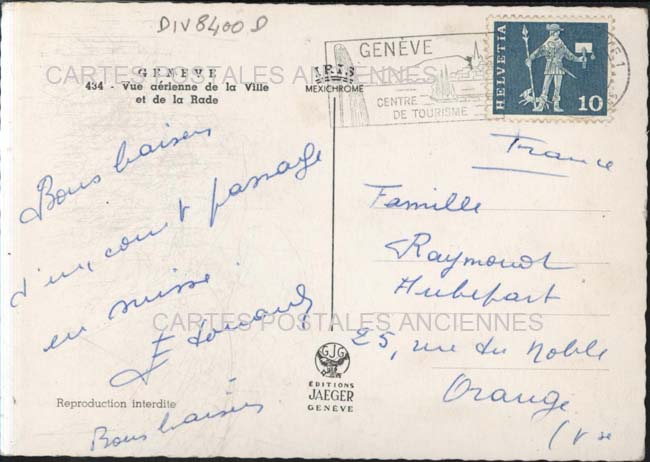 DIV8400D
GENÈVE
434 - Vue aérienne de la Ville
et de la Rade
IRIS
MEXICHROME
GENÈVE
CENTRE
DE TOURISME
HELVETIA
10
CARTES POSTALES ANCIENNES
Bons baisers
d'un court passage
en suisse
Edouard
Bons baisers
Reproduction interdite
GJG
ÉDITIONS
JAEGER
GENÈVE
France
Famille
Raymond
25, rue du Noble
Orange
(Vse
CARTES POSTALES ANCIENNES